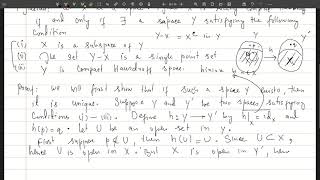 if and only if ∃ a space Y satisfying the following
Condition Y-X = X^c in Y
(i) X is a subspace of Y
(ii) The set Y-X is a single point set
(iii) Y is compact Hausdorff space.
Proof: we will first show that if such a space Y exists, then
it is unique. Suppose Y and Y' be two spaces satisfying
Conditions (i) - (iii). Define h: Y → Y' by h|_X = id_X and
h(p) = q. Let U be an open set in Y.
First suppose p ∉ U, then h(U) = U. Since U ⊂ X,
hence U is open in X. But X is open in Y', hence